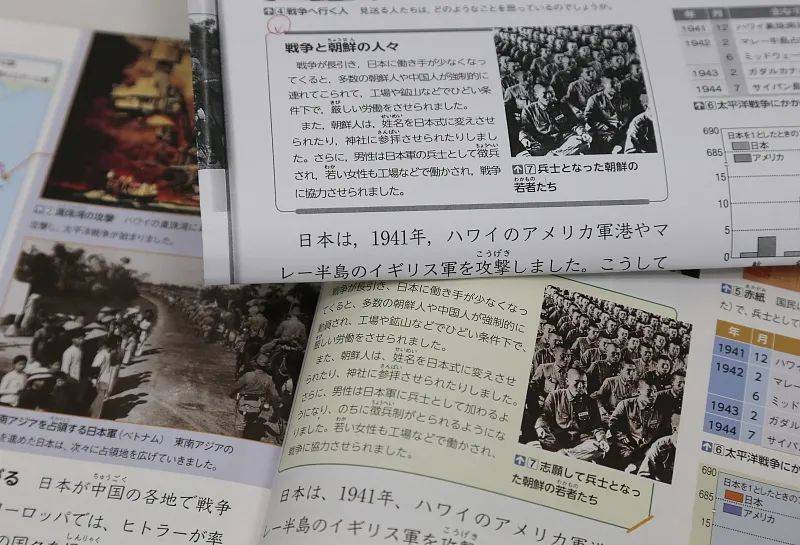 4 戦争へ行く人 見送る人たちは、どのようなことを思っているのでしょうか。
戦争と朝鮮の人々
ちょうせん
戦争が長引き、日本に働き手が少なくなっ
てくると、多数の朝鮮人や中国人が強制的に
連れてこられて、工場や鉱山などでひどい条
件下で、厳しい労働をさせられました。
また、朝鮮人は、姓名を日本式に変えさせ
られたり、神社に参拝させられたりしまし
た。さらに、男性は日本軍の兵士として徴兵
され、若い女性も工場などで働かされ、戦争
に協力させられました。
7 兵士となった朝鮮の
若者たち
わかもの
日本は，1941年，ハワイのアメリカ軍港やマ
レー半島のイギリス軍を攻撃しました。こうして
こうげき
年 月
1941 12 ハワイ
1942 2 マレー半島
6 ミッドウェー
1943 2 ガダルカナ
1944 7 サイパン島
6 太平洋戦争にかか
690
685
15
日本を1としたときの
日本
アメリカ
2 真珠湾の攻撃 ハワイの真珠湾に
攻撃し、太平洋戦争が始まりました。
南アジアを占領する日本軍(ベトナム) 東南アジアの
を進めた日本は、次々に占領地を広げていきました。
日本が中国の各地で戦争
ちゅうごく
ヨーロッパでは、ヒトラーが率
しんりゃく
戦争が長引き、日本に働き手が少なくなっ
てくると、多数の朝鮮人や中国人が強制的に
動員され、工場や鉱山などでひどい条件下で、
厳しい労働をさせられました。
また、朝鮮人は、姓名を日本式に変えさせ
られたり、神社に参拝させられたりしました。
さらに、男性は日本軍に兵士として加わるよ
うになり、のちに徴兵制がとられるようにな
りました。若い女性も工場などで働かされ、
戦争に協力させられました。
7 志願して兵士となっ
た朝鮮の若者たち
日本は、1941年、ハワイのアメリカ軍港
レー半島のイギリス軍を攻撃
こうげき
5 赤紙 国民に
た)で、兵士とし
年 月
1941 12 ハ
1942 2 マレ
6 ミッ
1943 2 ガダ
1944 7 サイ
6 太平洋戦争に
690
685
15
日本を1とした
日本
アメリカ